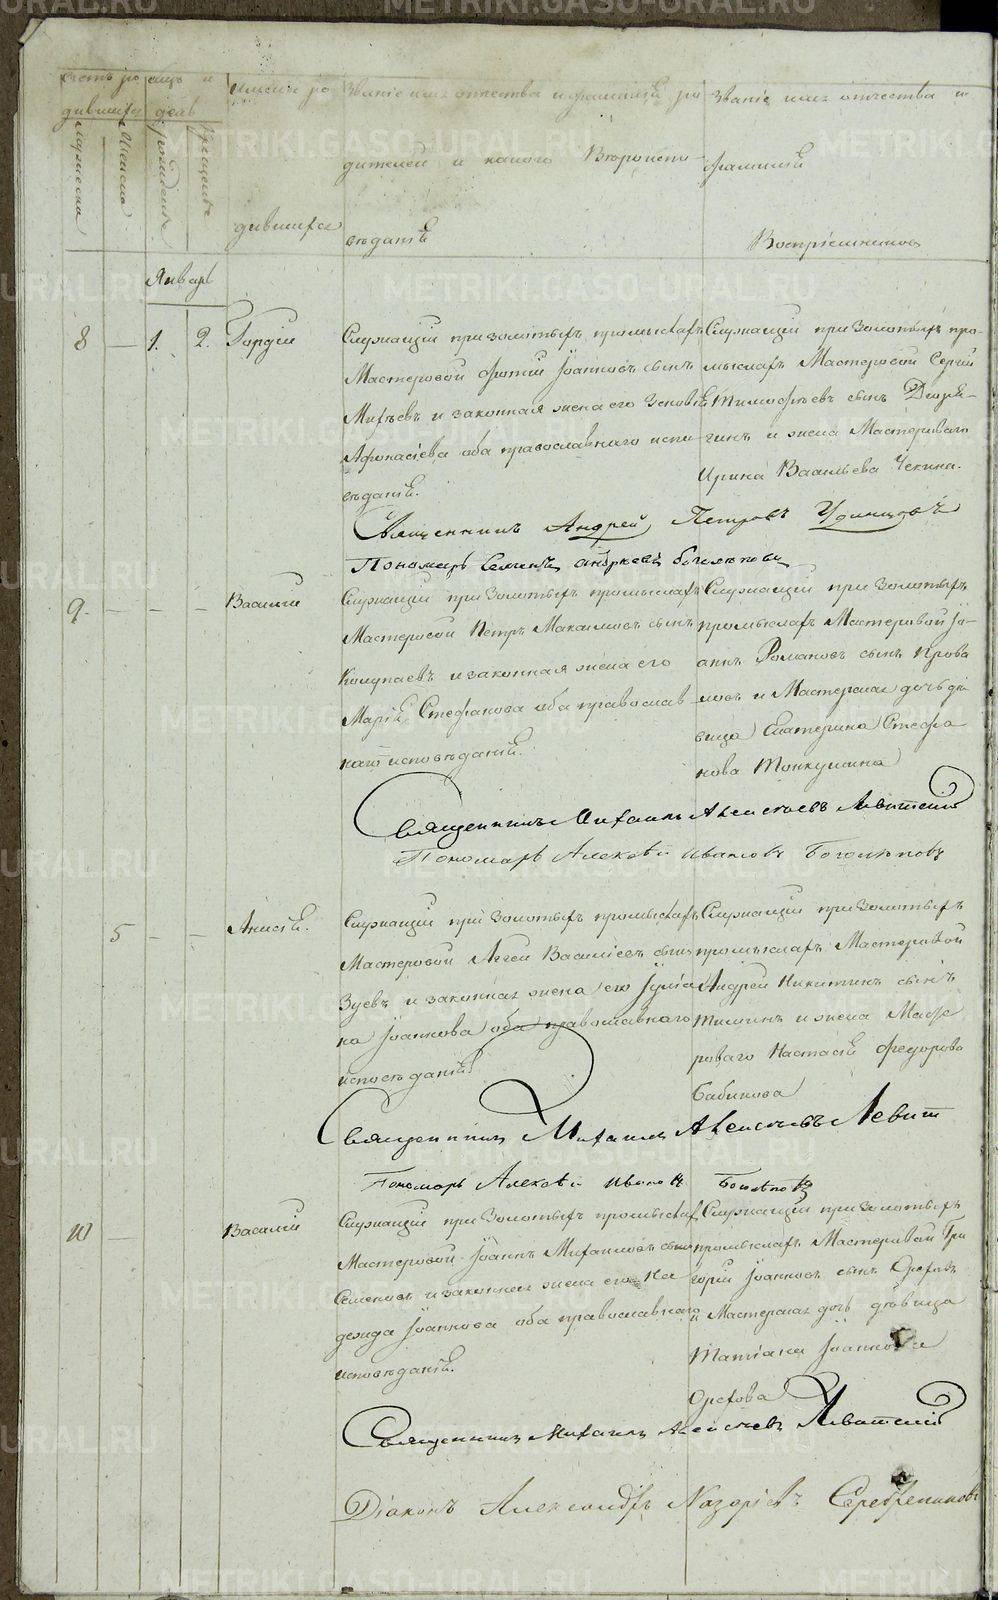 Счетъ ро
дившихся
мужеска
женска
месяцъ и
день
рожденія
крещенія
Имена ро
дившихся
Званіе имя отчества и фамилія ро
дителей и какого Вероиспо
веданія
Званіе имя отчества и
фамилія
Воспріемниковъ
Январь
8 — 1. 2. Гордій
Служащій при золотыхъ промыслахъ
Мастеровой Фотій Іоанновъ сынъ
и законная жена его
Афонасіева оба православнаго испо
веданія.
Служащій при Золотыхъ про
мыслахъ Мастеровой Сергій
Тимофеевъ сынъ
и жена Мастероваго
Ирина Васильева Чекина.
Священникъ Андрей Петровъ Удинцовъ
Пономарь Андреевъ
9. — — — Василій
Служащій при Золотыхъ промыслахъ
Мастеровой Петръ Максимовъ сынъ
Колупаевъ и законная жена его
Марія Стефанова оба православ
наго исповеданія.
Служащій при Золотыхъ
промыслахъ Мастеровой Іо
аннъ Романовъ сынъ
и Мастерская дочь де
вица Екатерина Стефа
нова Тонкушина
Священникъ Михаилъ Алексіевъ Левитскій
Пономарь Алексей Ивановъ Боголеповъ
5 — — Анисія.
Служащій при Золотыхъ промыслахъ
Мастеровой Аггей Василіевъ сынъ
Зуевъ и законная жена его Іуліа
на Іоаннова оба православнаго
исповеданія.
Служащій при Золотыхъ
промыслахъ Мастеровой
Андрей Никитинъ сынъ
и жена Масте
роваго Настасія Федорова
Бабинова
Священникъ Михаилъ Алексіевъ Левит
Пономарь Алексей Ивановъ Боголеповъ
10 — Василій
Служащій при Золотыхъ промыслах
Мастеровой Іоаннъ Михаиловъ сынъ
Семеновъ и законная жена его На
дежда Іоаннова оба православнаго
исповеданія.
Служащій при Золотыхъ
промыслахъ Мастеровой Гри
горій Іоанновъ сынъ Ореховъ
и Мастерская дочь девица
Татіана Іоаннова
Орехова
Священникъ Михаилъ Алексіевъ Левитскій
Діаконъ Александръ Назаріевъ Серебрениковъ
METRIKI.GASO-URAL.RU